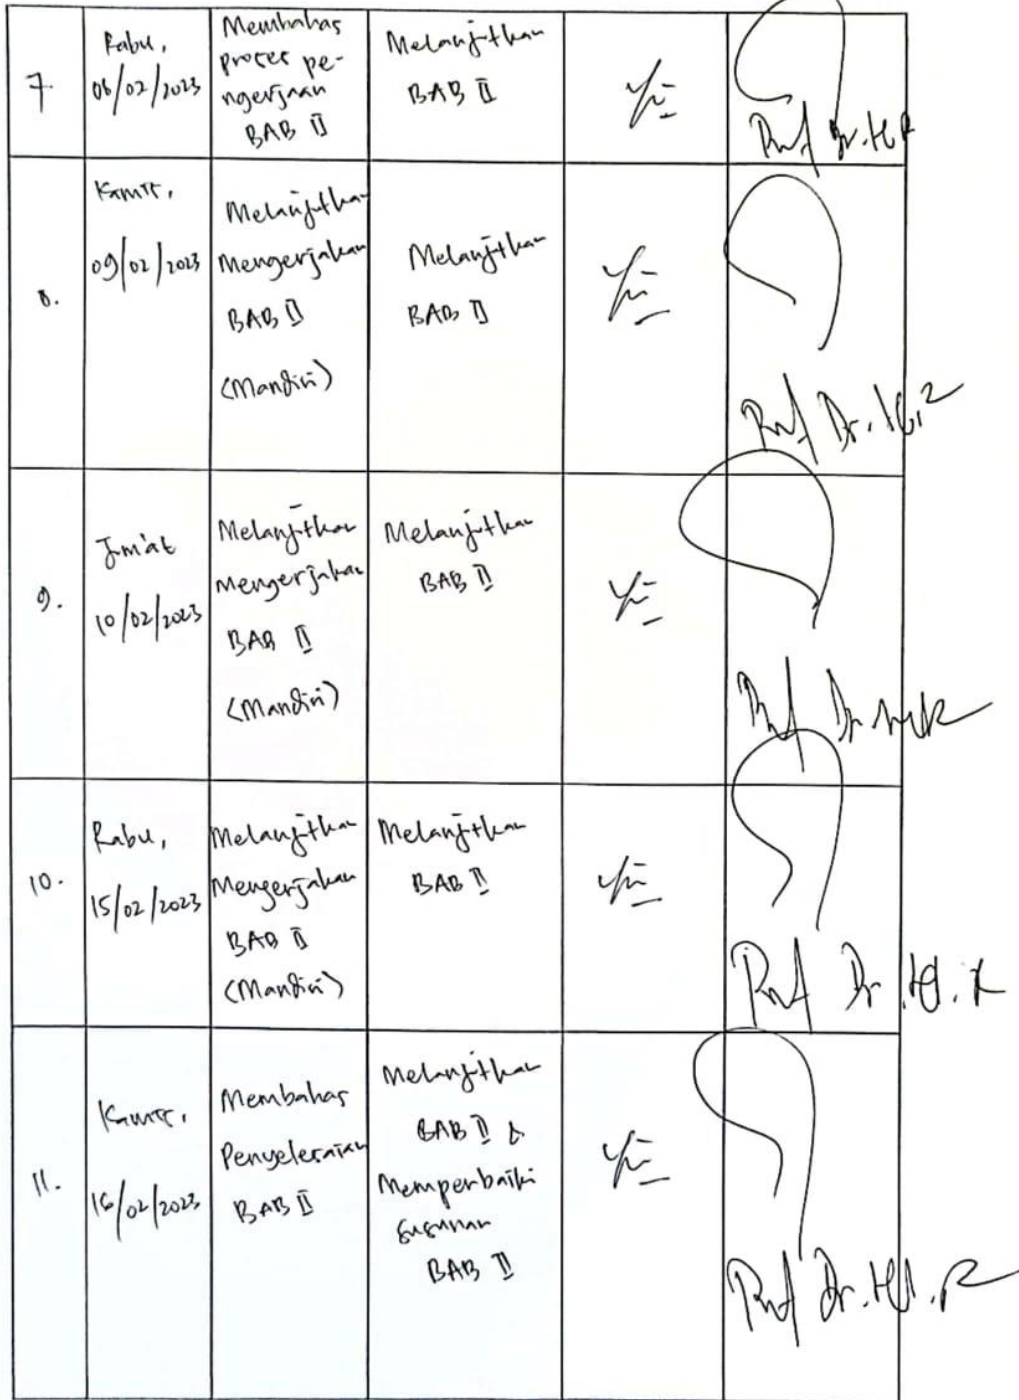 7
Rabu,
08/02/2023
Membahas
proses pe-
ngerjaan
BAB II
Melanjutkan
BAB II
Prof Dr. H. R
8.
Kamis,
09/02/2023
Melanjutkan
Mengerjakan
BAB II
(Mandiri)
Melanjutkan
BAB II
Prof Dr.
9.
Jum'at
10/02/2023
Melanjutkan
Mengerjakan
BAB II
(Mandiri)
Melanjutkan
BAB II
Prof Dr
10.
Rabu,
15/02/2023
Melanjutkan
Mengerjakan
BAB II
(Mandiri)
Melanjutkan
BAB II
Prof Dr
11.
Kamis,
16/02/2023
Membahas
Penyelesaian
BAB II
Melanjutkan
BAB II &
Memperbaiki
susunan
BAB II
Prof Dr.